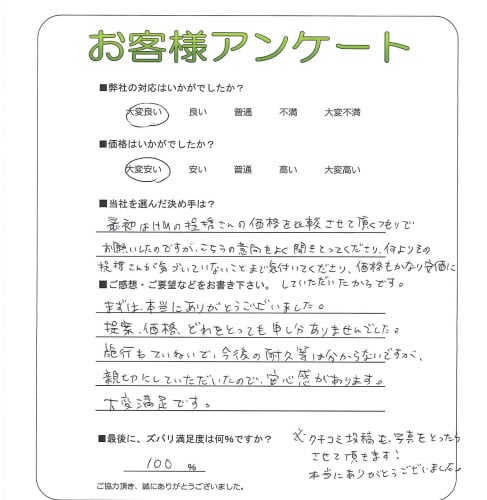 お客様アンケート
■弊社の対応はいかがでしたか？
大変良い 良い 普通 不満 大変不満
■価格はいかがでしたか？
大変安い 安い 普通 高い 大変高い
■当社を選んだ決め手は？
最初はHMの提携さんの価格を比較させて頂くつもりで
お願いしたのですが、こちらの意向をよく聞きとってくださり、何よりもの
提携さんが気づいていないことまで気付いてくださり、価格もかなり安価に
していただいたからです。
■ご感想・ご要望などをお書き下さい。
まずは、本当にありがとうございました。
提案、価格、どれをとっても申し分ありませんでした。
施行もていねいで、今後の耐久等は分からないですが、
親切にしていただいたので、安心感があります。
大変満足です。
■最後に、ズバリ満足度は何%ですか？
100 %
ご協力頂き、誠にありがとうございました。
クチコミ投稿も、写真をとったら
させて頂きます！
本当にありがとうございました。